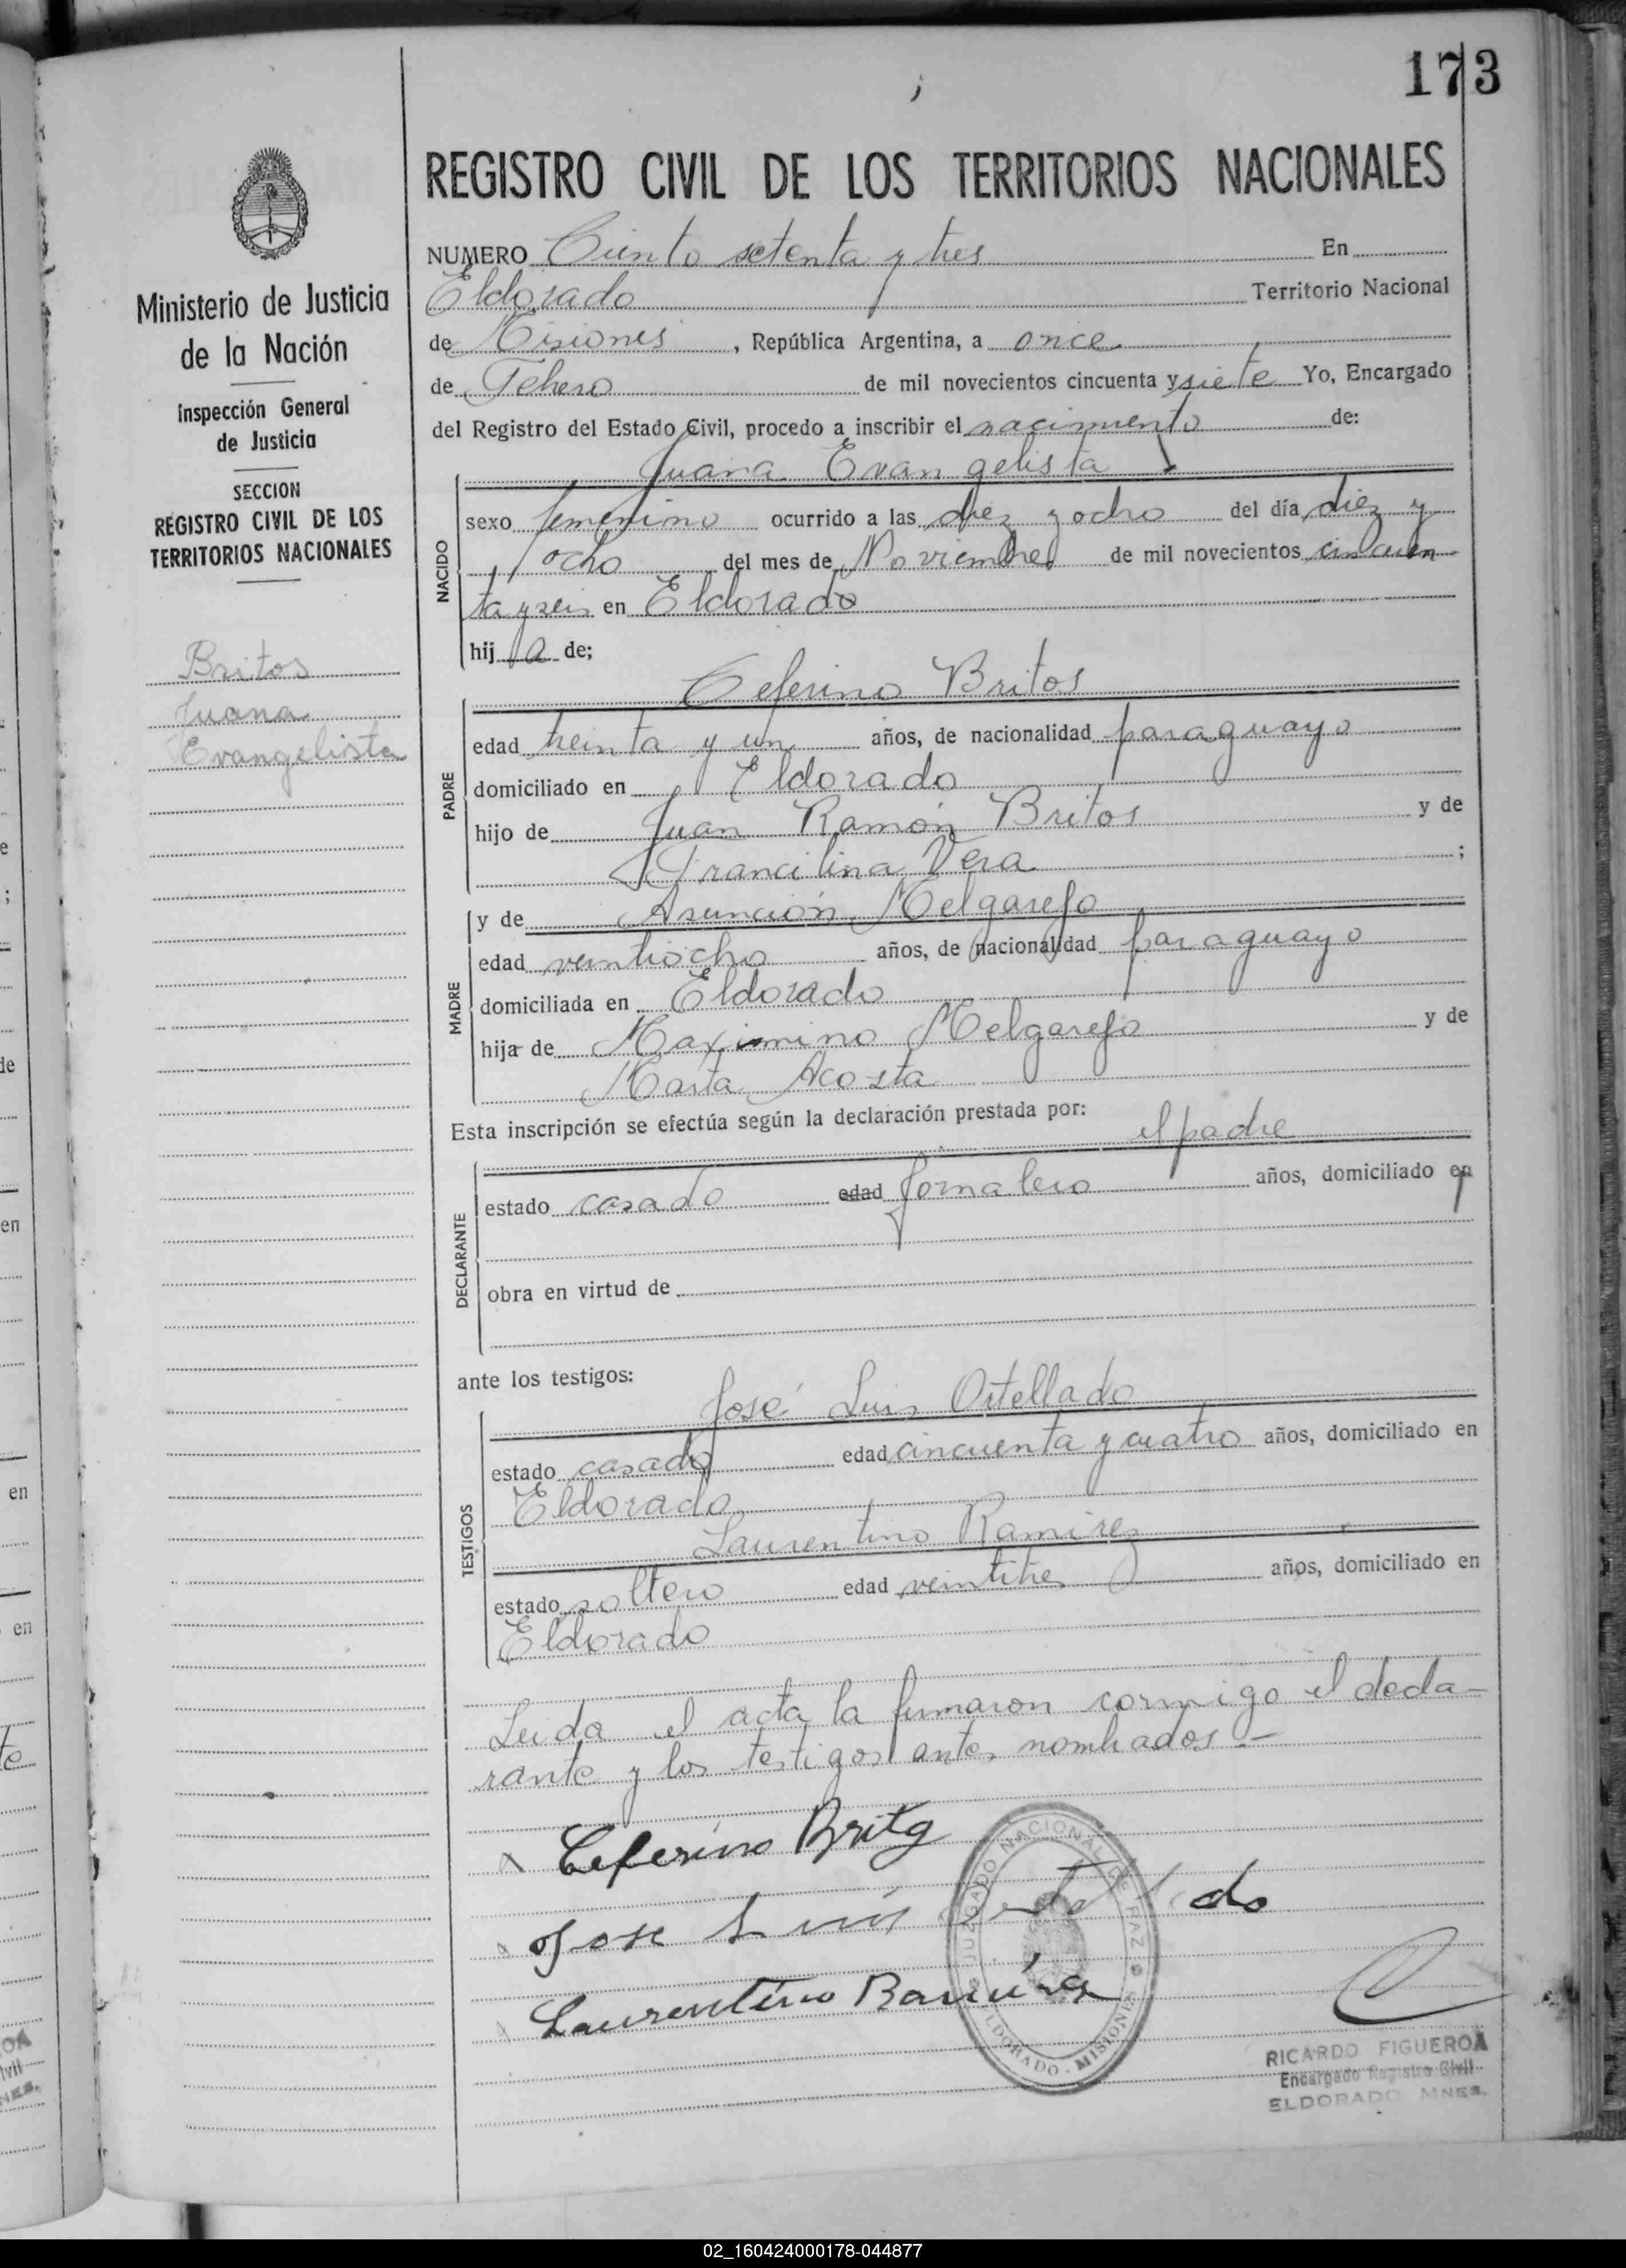 173
REGISTRO CIVIL DE LOS TERRITORIOS NACIONALES
Ministerio de Justicia
de la Nación
Inspección General
de Justicia
SECCION
REGISTRO CIVIL DE LOS
TERRITORIOS NACIONALES
Britos
Juana
Evangelista
NUMERO Ciento setenta y tres En
Eldorado Territorio Nacional
de Misiones, República Argentina, a once
de Febrero de mil novecientos cincuenta y siete Yo, Encargado
del Registro del Estado Civil, procedo a inscribir el nacimiento de:
Juana Evangelista
NACIDO
sexo femenino ocurrido a las diez y ocho del día diez y
ocho del mes de Noviembre de mil novecientos cincuen
ta y seis en Eldorado
hija de;
Ceferino Britos
PADRE
edad treinta y un años, de nacionalidad paraguayo
domiciliado en Eldorado
hijo de Juan Ramón Britos y de
Francilina Vera ;
MADRE
y de Asunción Melgarejo
edad veintiocho años, de nacionalidad paraguayo
domiciliada en Eldorado
hija de Maximino Melgarejo y de
Marta Acosta
Esta inscripción se efectúa según la declaración prestada por:
el padre
DECLARANTE
estado casado edad jornalero años, domiciliado en
obra en virtud de
ante los testigos:
José Luis Ortellado
TESTIGOS
estado casado edad cincuenta y cuatro años, domiciliado en
Eldorado
Laurentino Ramirez
estado soltero edad veintitres años, domiciliado en
Eldorado
Leida el acta la firmaron conmigo el decla-
rante y los testigos antes nombrados.-
Ceferino Brito
Jose Luis Ortellado
Laurentino Ramírez
JUZGADO NACIONAL DE PAZ
ELDORADO - MISIONES
RICARDO FIGUEROA
Encargado Registro Civil
ELDORADO MNES.
02_160424000178-044877